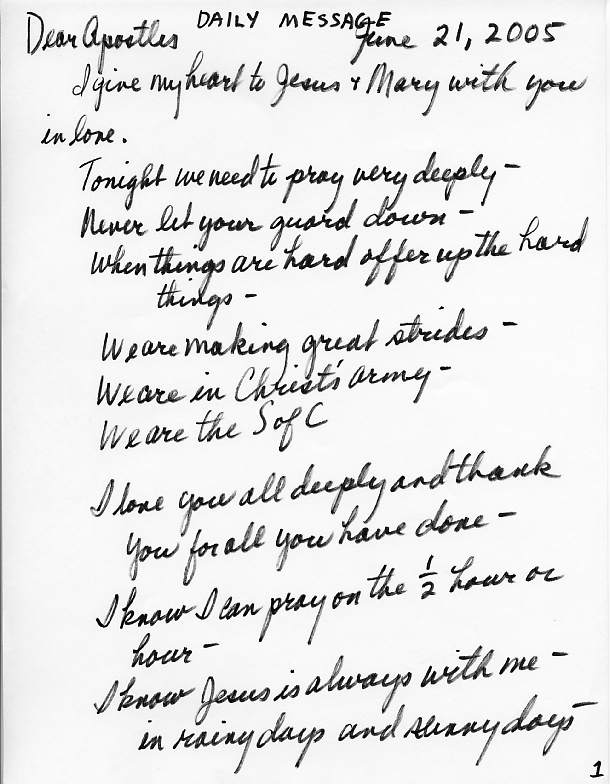 DAILY MESSAGE
Dear Apostles June 21, 2005
I give my heart to Jesus + Mary with you
in love.
Tonight we need to pray very deeply –
Never let your guard down –
When things are hard offer up the hard
things –
We are making great strides –
We are in Christ's army –
We are the S of C
I love you all deeply and thank
you for all you have done –
I know I can pray on the 1/2 hour or
hour –
I know Jesus is always with me –
in rainy days and sunny days
1